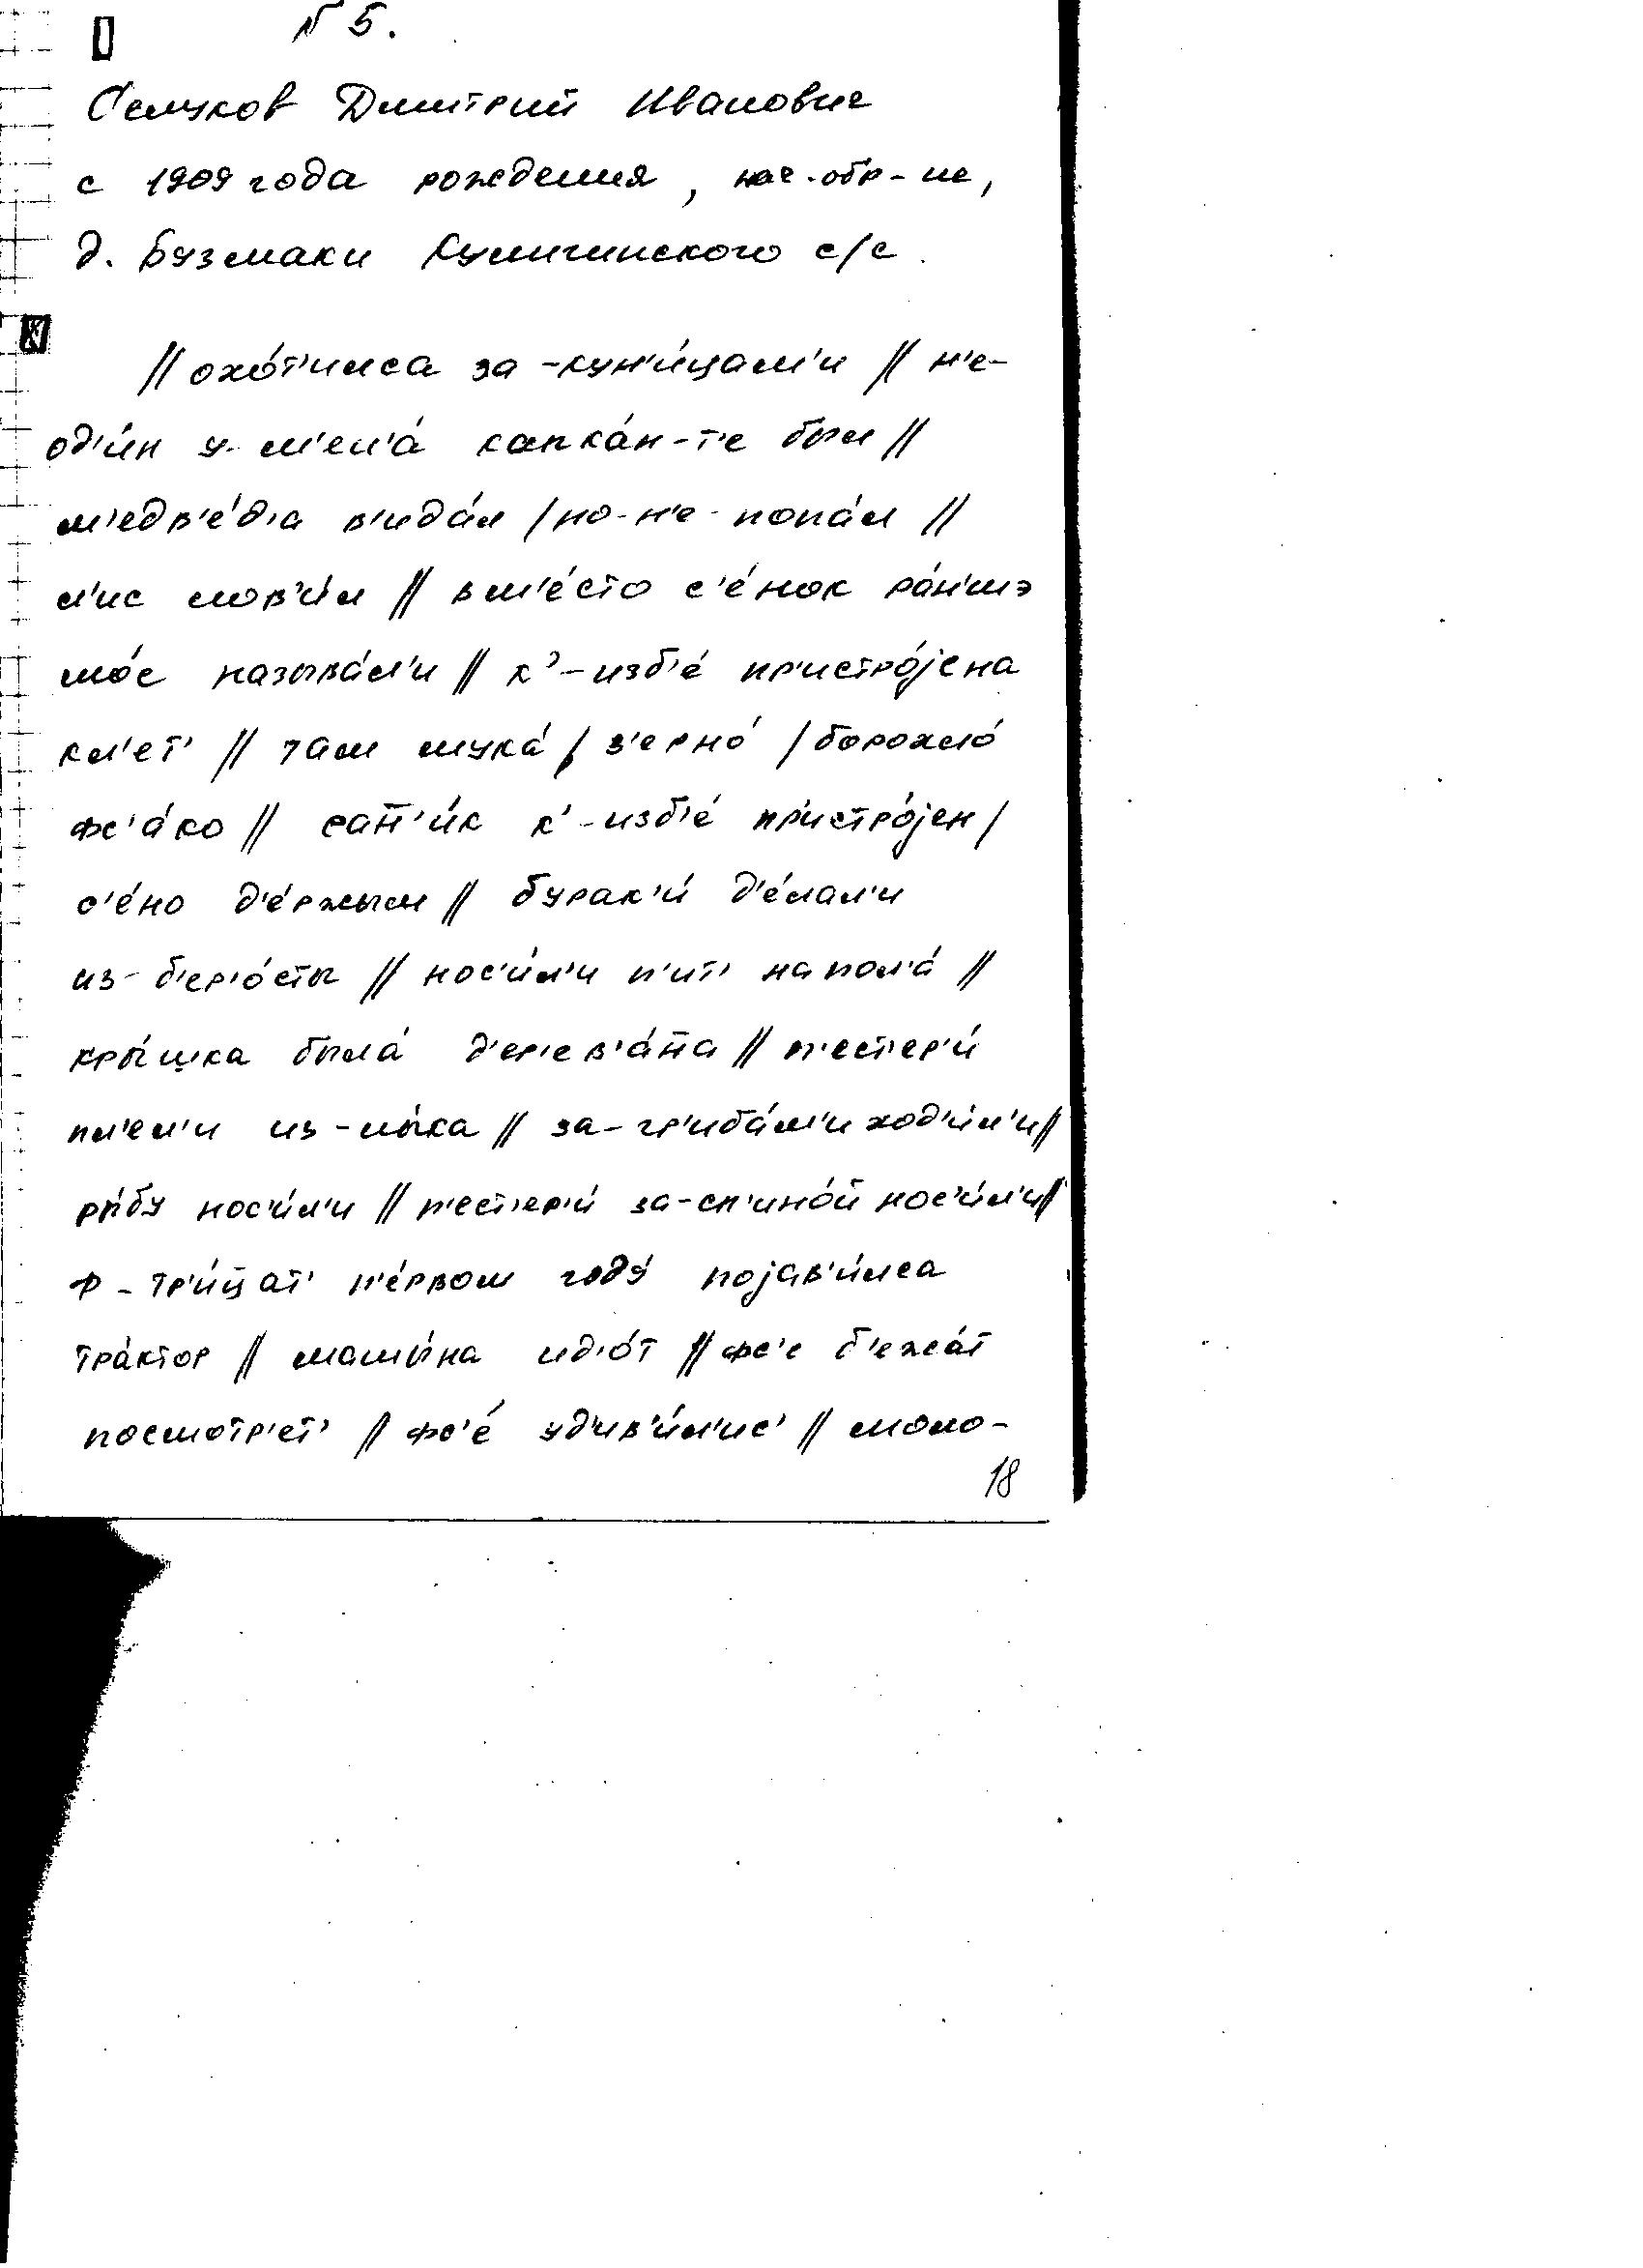 N 5.
Селуков Дмитрий Иванович
с 1909 года рождения, нач. обр-ие,
д. Бузмаки Кулигинского с/с.
// охо́т'илса за-кун'и́цам'и // н'е-
од'и́н у-м'ен'а́ капка́н-т'е был //
м'едв'е́д'а в'ида́л / но-н'е-попа́л //
л'ис лов'и́л // вм'е́сто с'е́нок ра́н'шэ
мо́с называ́л'и // к'-изб'е́ пр'истро́јена
кл'ет' // там мука́ / з'ерно́ / борохло́
фс'а́ко // сан̄'и́к к'-изб'е́ пр'истро́јен /
с'е́но д'е́ржым // бурак'и́ д'е́лал'и
из-б'ер'о́сты // нос'и́л'и п'ит' на пол'а́ //
кры́шка была́ д'ер'ев'а́н̄а // п'ест'ер'и́
пл'ел'и из-лы́ка // за-гр'иба́м'и ход'и́л'и //
ры́бу нос'и́л'и // п'ест'ер'и́ за-сп'ино́й нос'и́л'и //
ф-тр'и́ц̄ат' п'е́рвом году́ појав'и́лса
тра́ктор // машы́на ид'о́т // фс'е б'ежа́т
посмотр'ет' // фс'е́ уд'ив'и́л'ис' // моло-
18